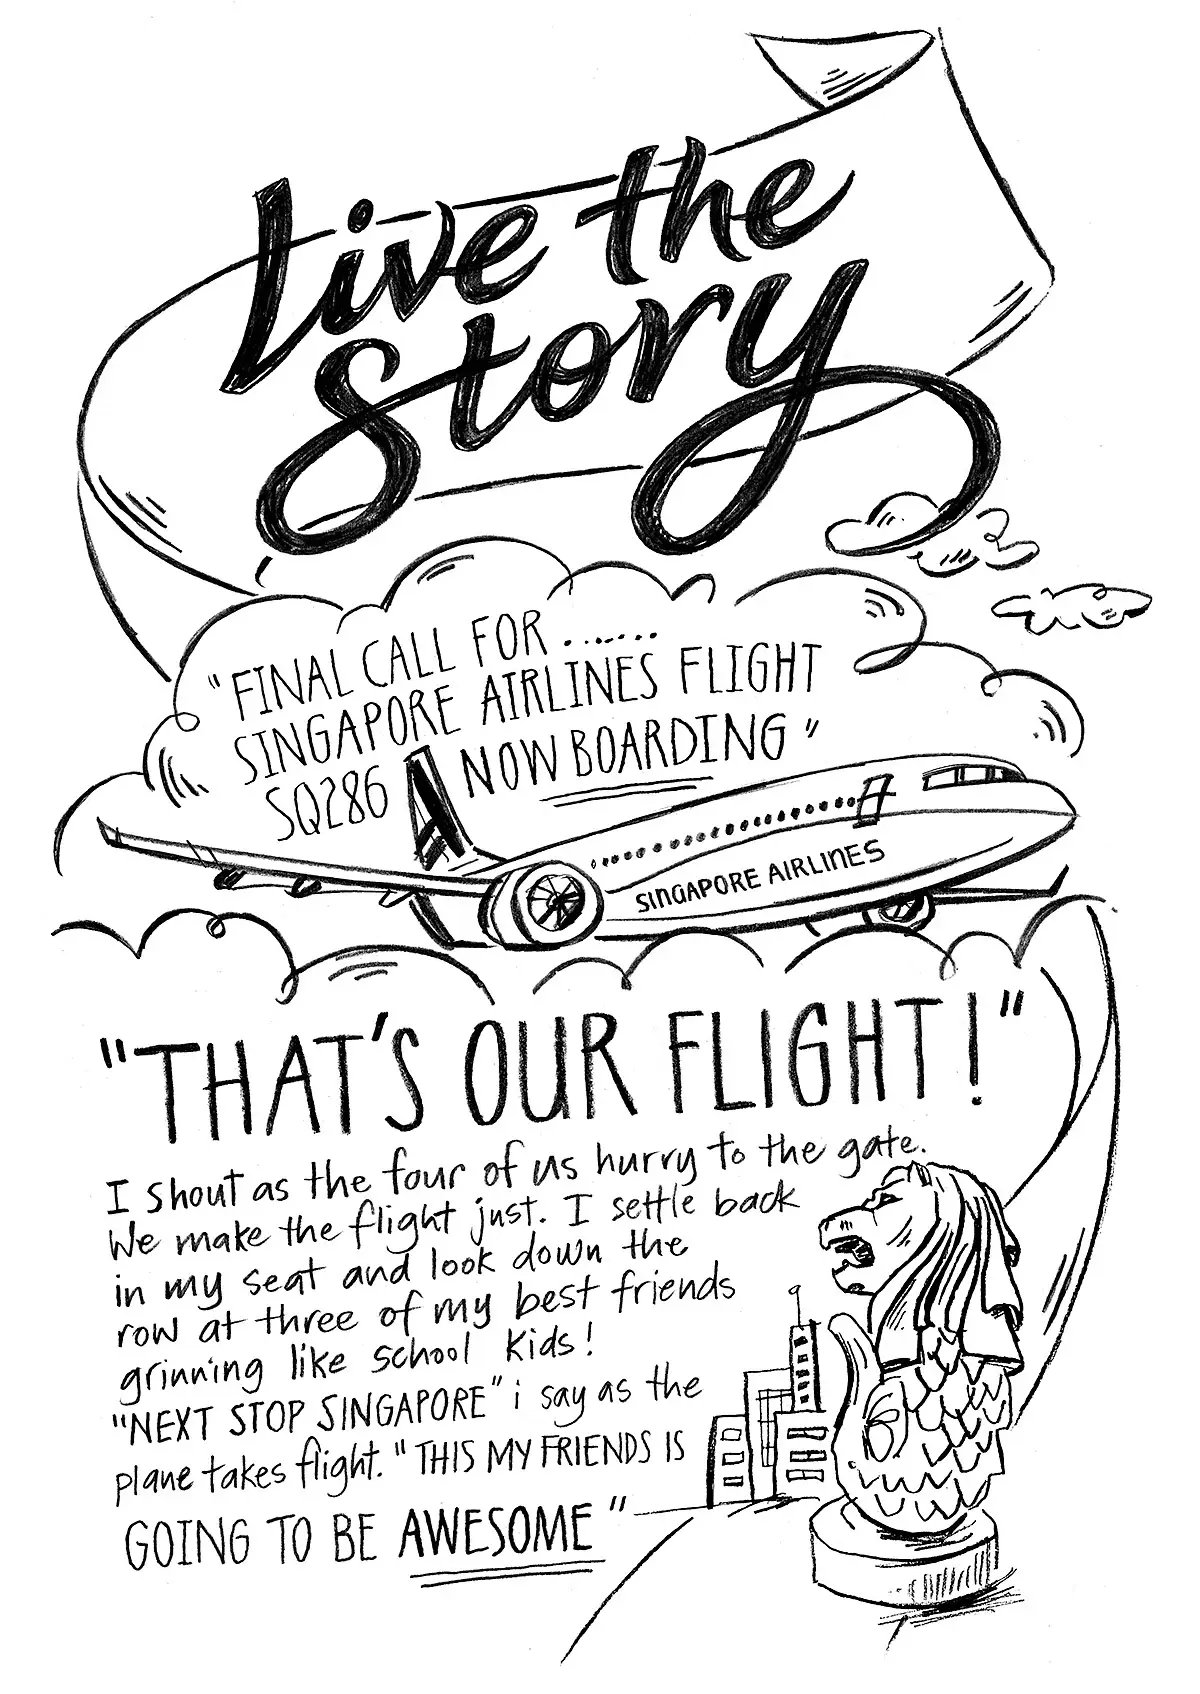 Live the
Story
"FINAL CALL FOR .......
SINGAPORE AIRLINES FLIGHT
SQ286 NOW BOARDING"
SINGAPORE AIRLINES
"THAT'S OUR FLIGHT!"
I shout as the four of us hurry to the gate.
We make the flight just. I settle back
in my seat and look down the
row at three of my best friends
grinning like school kids!
"NEXT STOP SINGAPORE" i say as the
plane takes flight. "THIS MY FRIENDS IS
GOING TO BE AWESOME"